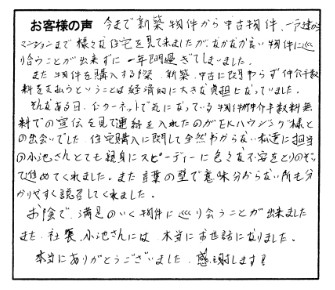 お客様の声 今まで新築物件から中古物件、一戸建から
マンションまで様々な住宅を見て来ましたが、なかなか良い物件に巡
り合うことが出来ずに一年間過ぎてしまいました。
また、物件を購入する際、新築、中古に関わらず仲介手数
料を支払うということは経済的に大きな負担となっていました。
そんなある日、インターネットで気になっている物件が仲介手数料無
料での宣伝を見て連絡を入れたのがEKハウジング様と
の出会いでした 住宅購入に関して全然わからない私達に担当
の小池さんとても親身にスピーディーに色々な不安をとりのぞい
て進めてくれました。また言葉の壁で意味分からない所も分
かりやすく説明してくれました。
お陰で、満足のいく物件に巡り合うことが出来ました
また、社長、小池さんには、本当にお世話になりました。
本当にありがとうございました、感謝します!